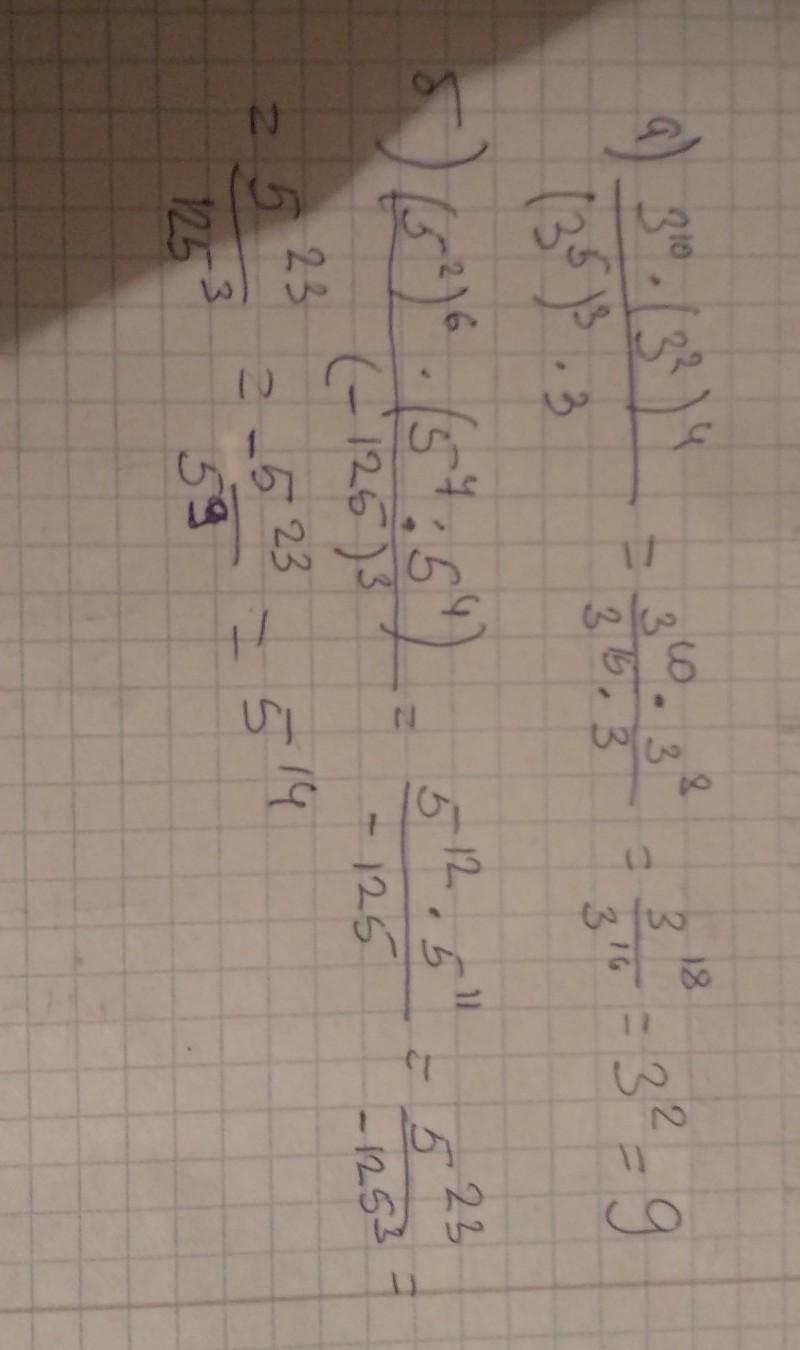 а) (3¹⁰ · (3²)⁴)/((3⁵)³ · 3) = (3¹⁰ · 3⁸)/(3¹⁵ · 3) = 3¹⁸/3¹⁶ = 3² = 9
б) ((5²)⁶ · (5⁷ : 5⁴))/((-125)³) = (5¹² · 5¹¹)/(-125) = 5²³/(-125³) =
= 5²³/125³ = -5²³/5⁹ = 5¹⁴